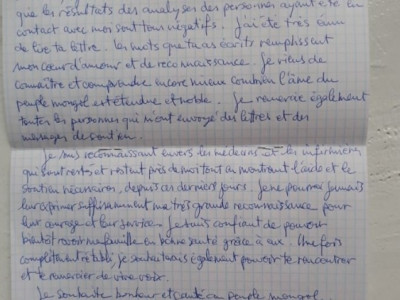 que les résultats des analyses des personnes ayant été en
contact avec moi sont tous négatifs. J'ai été très ému
de lire ta lettre. Les mots que tu as écrits remplissent
mon cœur d'amour et de reconnaissance. Je viens de
connaître et comprendre encore mieux combien l'âme du
peuple mongol est étendue et noble. Je remercie également
toutes les personnes qui m'ont envoyé des lettres et des
messages de soutien.
Je suis reconnaissant envers les médecins et les infirmières
qui sont restés et restent près de moi tout en montrant l'aide et le
soutien nécessaires, depuis ces derniers jours. Je ne pourrai jamais
leur exprimer suffisamment ma très grande reconnaissance pour
leur courage et leur service. Je suis confiant de pouvoir
bientôt revoir ma famille en bonne santé grâce à eux. Une fois
complètement rétabli, je souhaiterais également pouvoir te rencontrer
et te remercier de vive voix.
Je souhaite bonheur et santé au peuple mongol